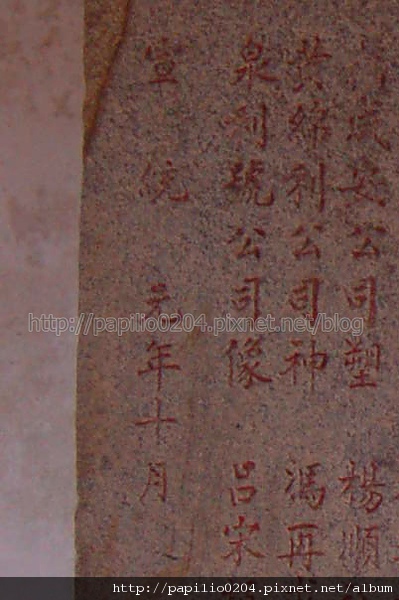 成安公司塑 楊順
黃綿利公司神 馮再
泉利號公司像 呂宋
宣統 元年十月
http://papilio0204.pixnet.net/blog
http://papilio0204.pixnet.net/album